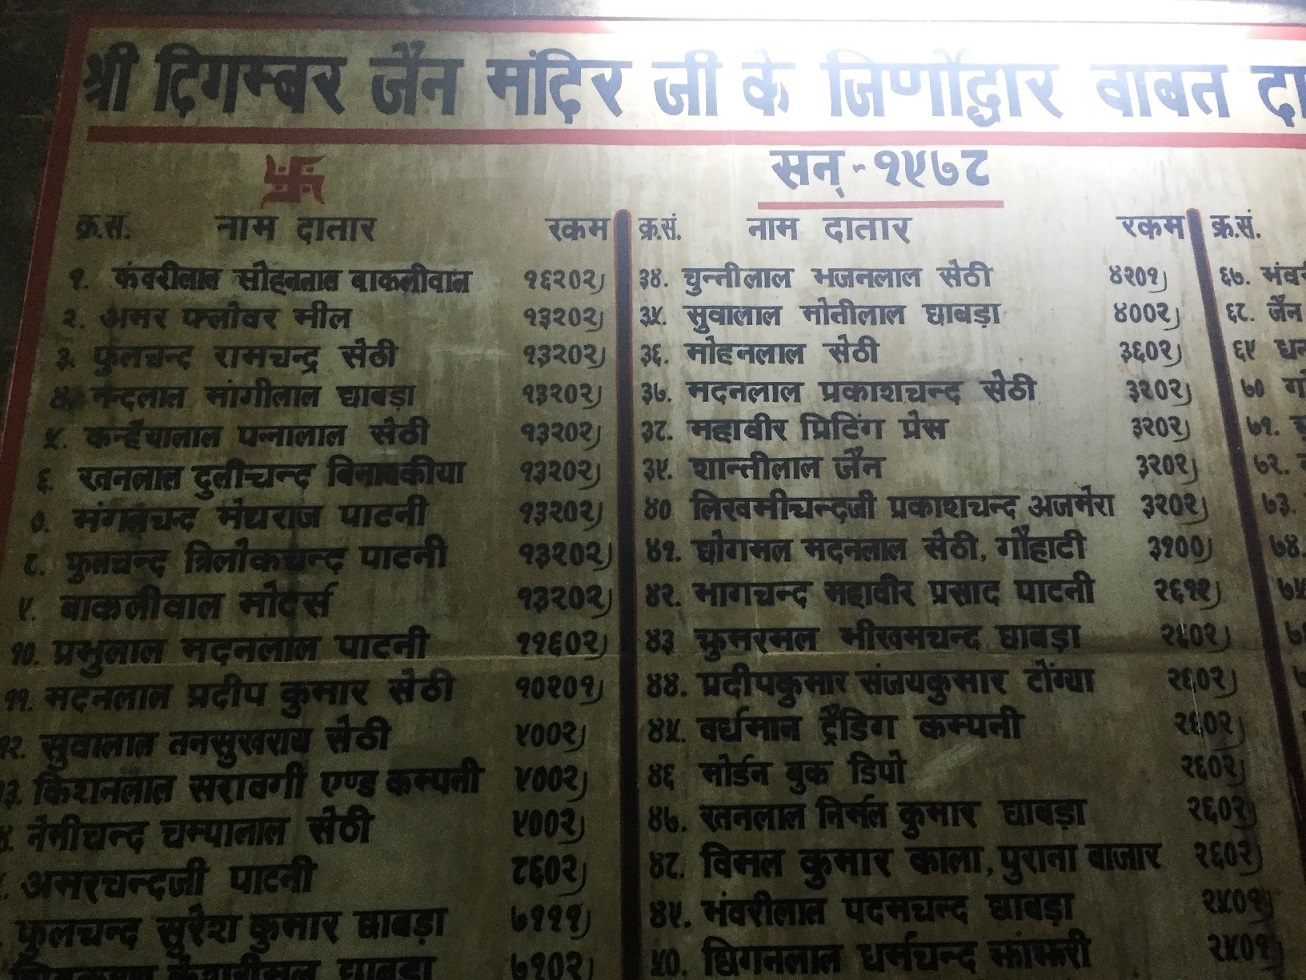 श्री दिगम्बर जैन मंदिर जी के जिर्णोद्धार वाबत दा
सन् - १९७८
क्र.सं. नाम दातार रकम
१. कंवरीलाल सोहनलाल बाकलीवाल १६२०२)
२. अमर फ्लोवर मील १३२०२)
३. फुलचन्द रामचन्द्र सेठी १३२०२)
४. नन्दलाल मांगीलाल छाबड़ा १३२०२)
५. कन्हैयालाल पन्नालाल सेठी १३२०२)
६. रतनलाल दुलीचन्द बिनायकीया १३२०२)
७. मंगलचन्द मेघराज पाटनी १३२०२)
८. फुलचन्द त्रिलोकचन्द पाटनी १३२०२)
९. बाकलीवाल मोटर्स १३२०२)
१०. प्रभुलाल मदनलाल पाटनी ११६०२)
११. मदनलाल प्रदीप कुमार सेठी १०२०१)
१२. सुवालाल तनसुखराय सेठी ९००२)
१३. किशनलाल सरावगी एण्ड कम्पनी ९००२)
४. नेमीचन्द चम्पालाल सेठी ९००२)
अमरचन्दजी पाटनी ८६०२)
फुलचन्द सुरेश कुमार छाबड़ा ७१११)
छाबड़ा ७१०२)
क्र.सं. नाम दातार रकम
३४. चुन्नीलाल भजनलाल सेठी ४२०१)
३५. सुवालाल मोतीलाल छाबड़ा ४००२)
३६. मोहनलाल सेठी ३६०२)
३७. मदनलाल प्रकाशचन्द सेठी ३२०२)
३८. महावीर प्रिटिंग प्रेस ३२०२)
३९. शान्तीलाल जैन ३२०२)
४० लिखमीचन्दजी प्रकाशचन्द अजमेरा ३२०२)
४१. छोगमल मदनलाल सेठी, गौहाटी ३१००)
४२. भागचन्द महावीर प्रसाद पाटनी २६११)
४३ कुमरमल भीखमचन्द छाबड़ा २६०२)
४४. प्रदीपकुमार संजयकुमार टोंग्या २६०२)
४५. वर्धमान ट्रैडिग कम्पनी २६०२)
४६ मोर्डन बुक डिपो २६०२)
४७. रतनलाल निर्मल कुमार छाबड़ा २६०२)
४८. विमल कुमार काला, पुराना बाजार २६०२)
४९. भंवरीलाल पदमचन्द छाबड़ा २५०१)
५०. छिगनलाल धर्मचन्द झांझरी २५०१)
क्र.सं.
६७. भंवर
६८. जैन
६९
७०
७१.
७२.
७३.
७४.